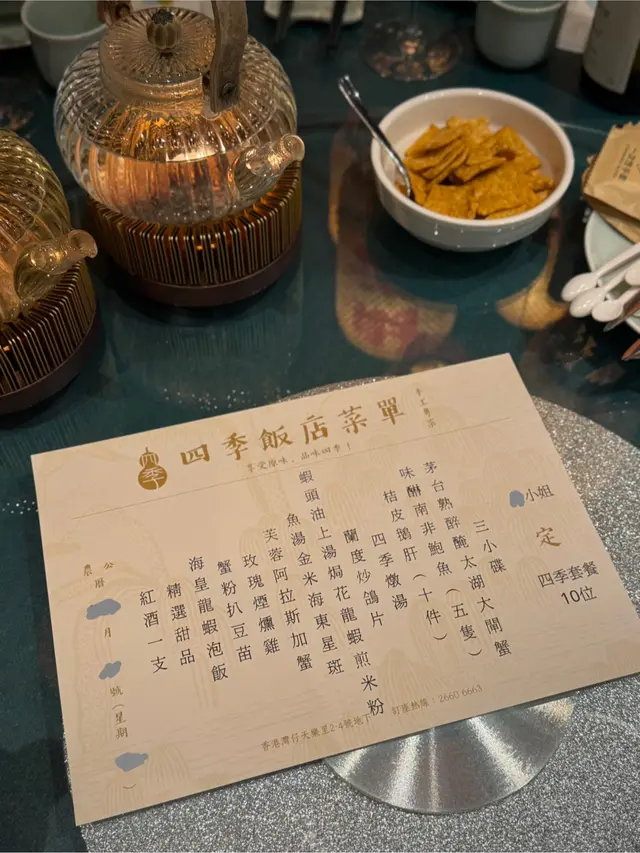 四季飯店菜單
手工粵菜
四季
享受原味、品味四季！
小姐
定
四季套餐
10位
三小碟
茅台熟醉醃太湖大閘蟹（五隻）
味醂南非鮑魚（十件）
桔皮鵝肝
四季燉湯
蘭度炒鴿片
蝦頭油上湯焗花龍蝦煎米粉
魚湯金米海東星斑
芙蓉阿拉斯加蟹
玫瑰煙燻雞
蟹粉扒豆苗
海皇龍蝦泡飯
精選甜品
紅酒一支
公曆
農曆
月 號（星期 ）
香港灣仔天樂里2-4號地下 訂座熱線：2660 6663